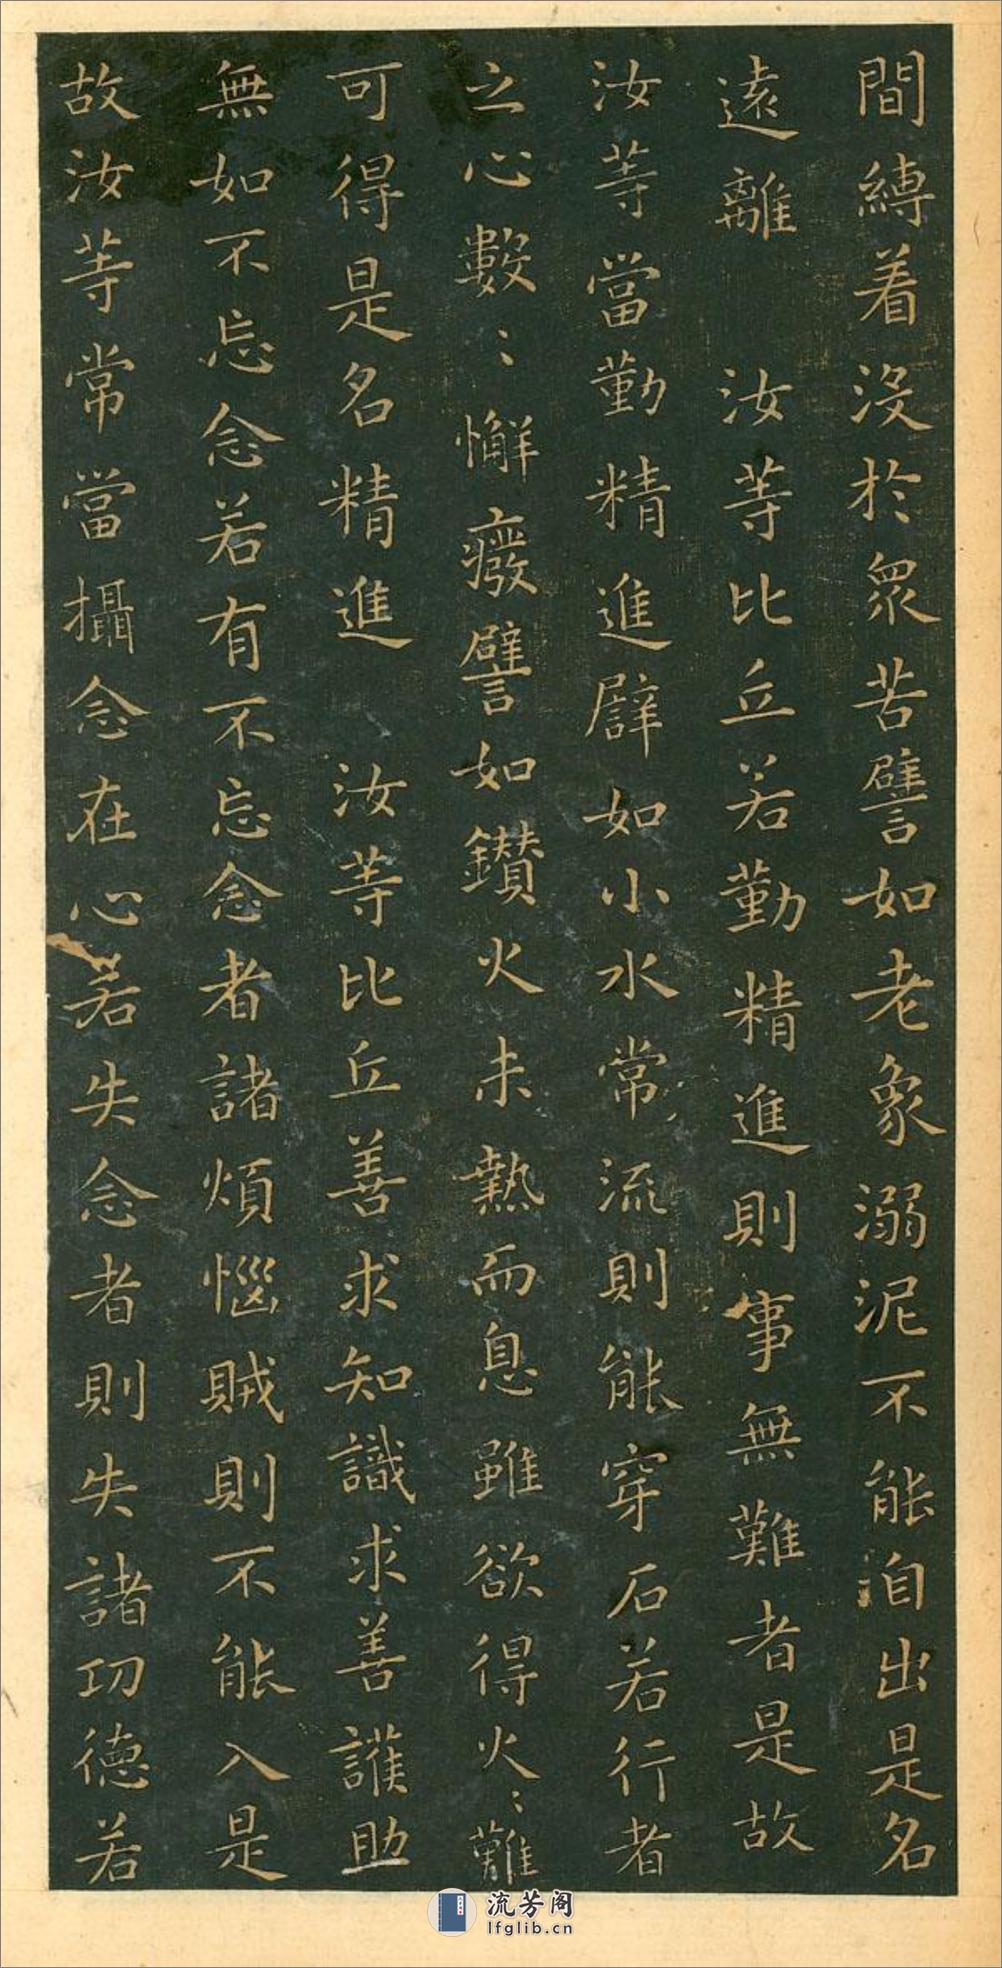 間縛着没於眾苦譬如老象溺泥不能自出是名
遠離 汝等比丘若勤精進則事無難者是故
汝等當勤精進譬如小水常流則能穿石若行者
之心數〻懈癈譬如鑚火未熱而息雖欲得火〻難
可得是名精進 汝等比丘善求知識求善護助
無如不忘念若有不忘念者諸煩惱賊則不能入是
故汝等常當攝念在心若失念者則失諸功德若
流芳阁
lfglib.cn